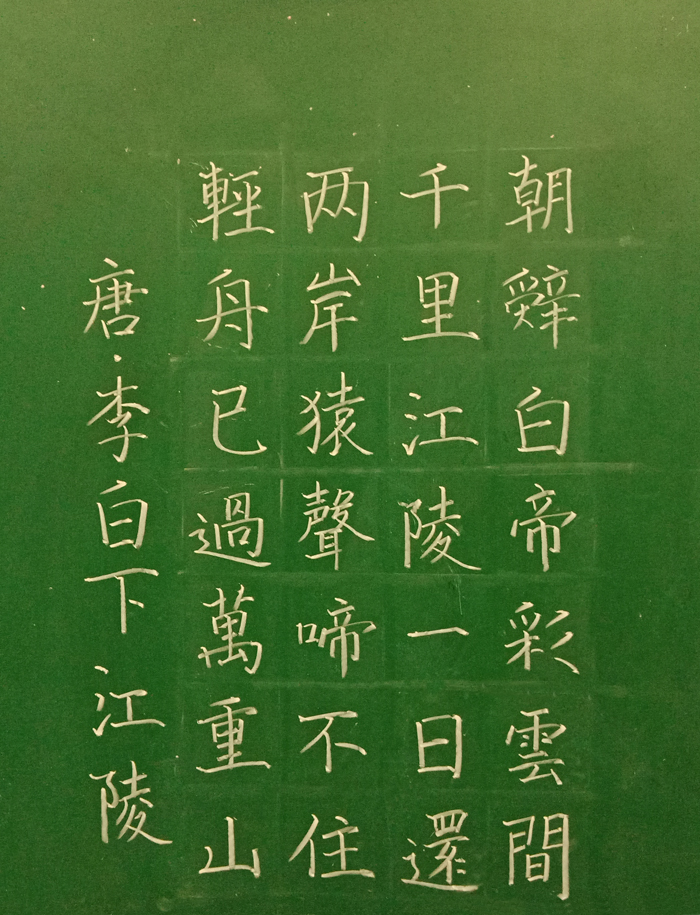 朝辤白帝彩雲間
千里江陵一日還
两岸猿聲啼不住
輕舟已過萬重山
唐·李白下江陵